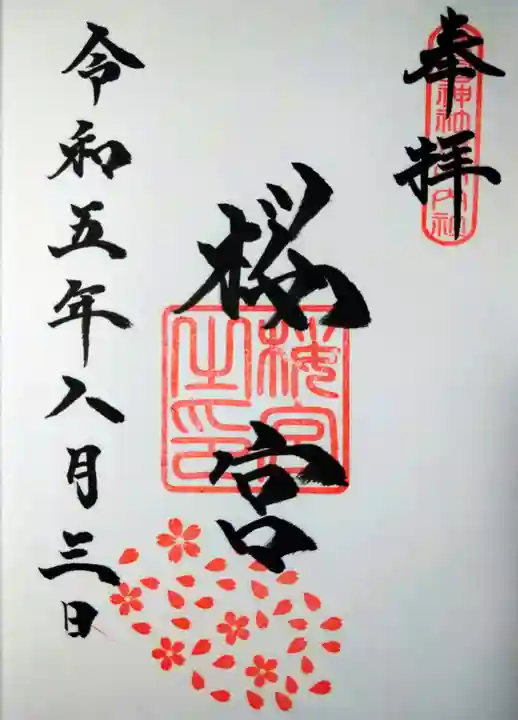 奉拝
桜宮
桜宮之印
令和五年八月三日